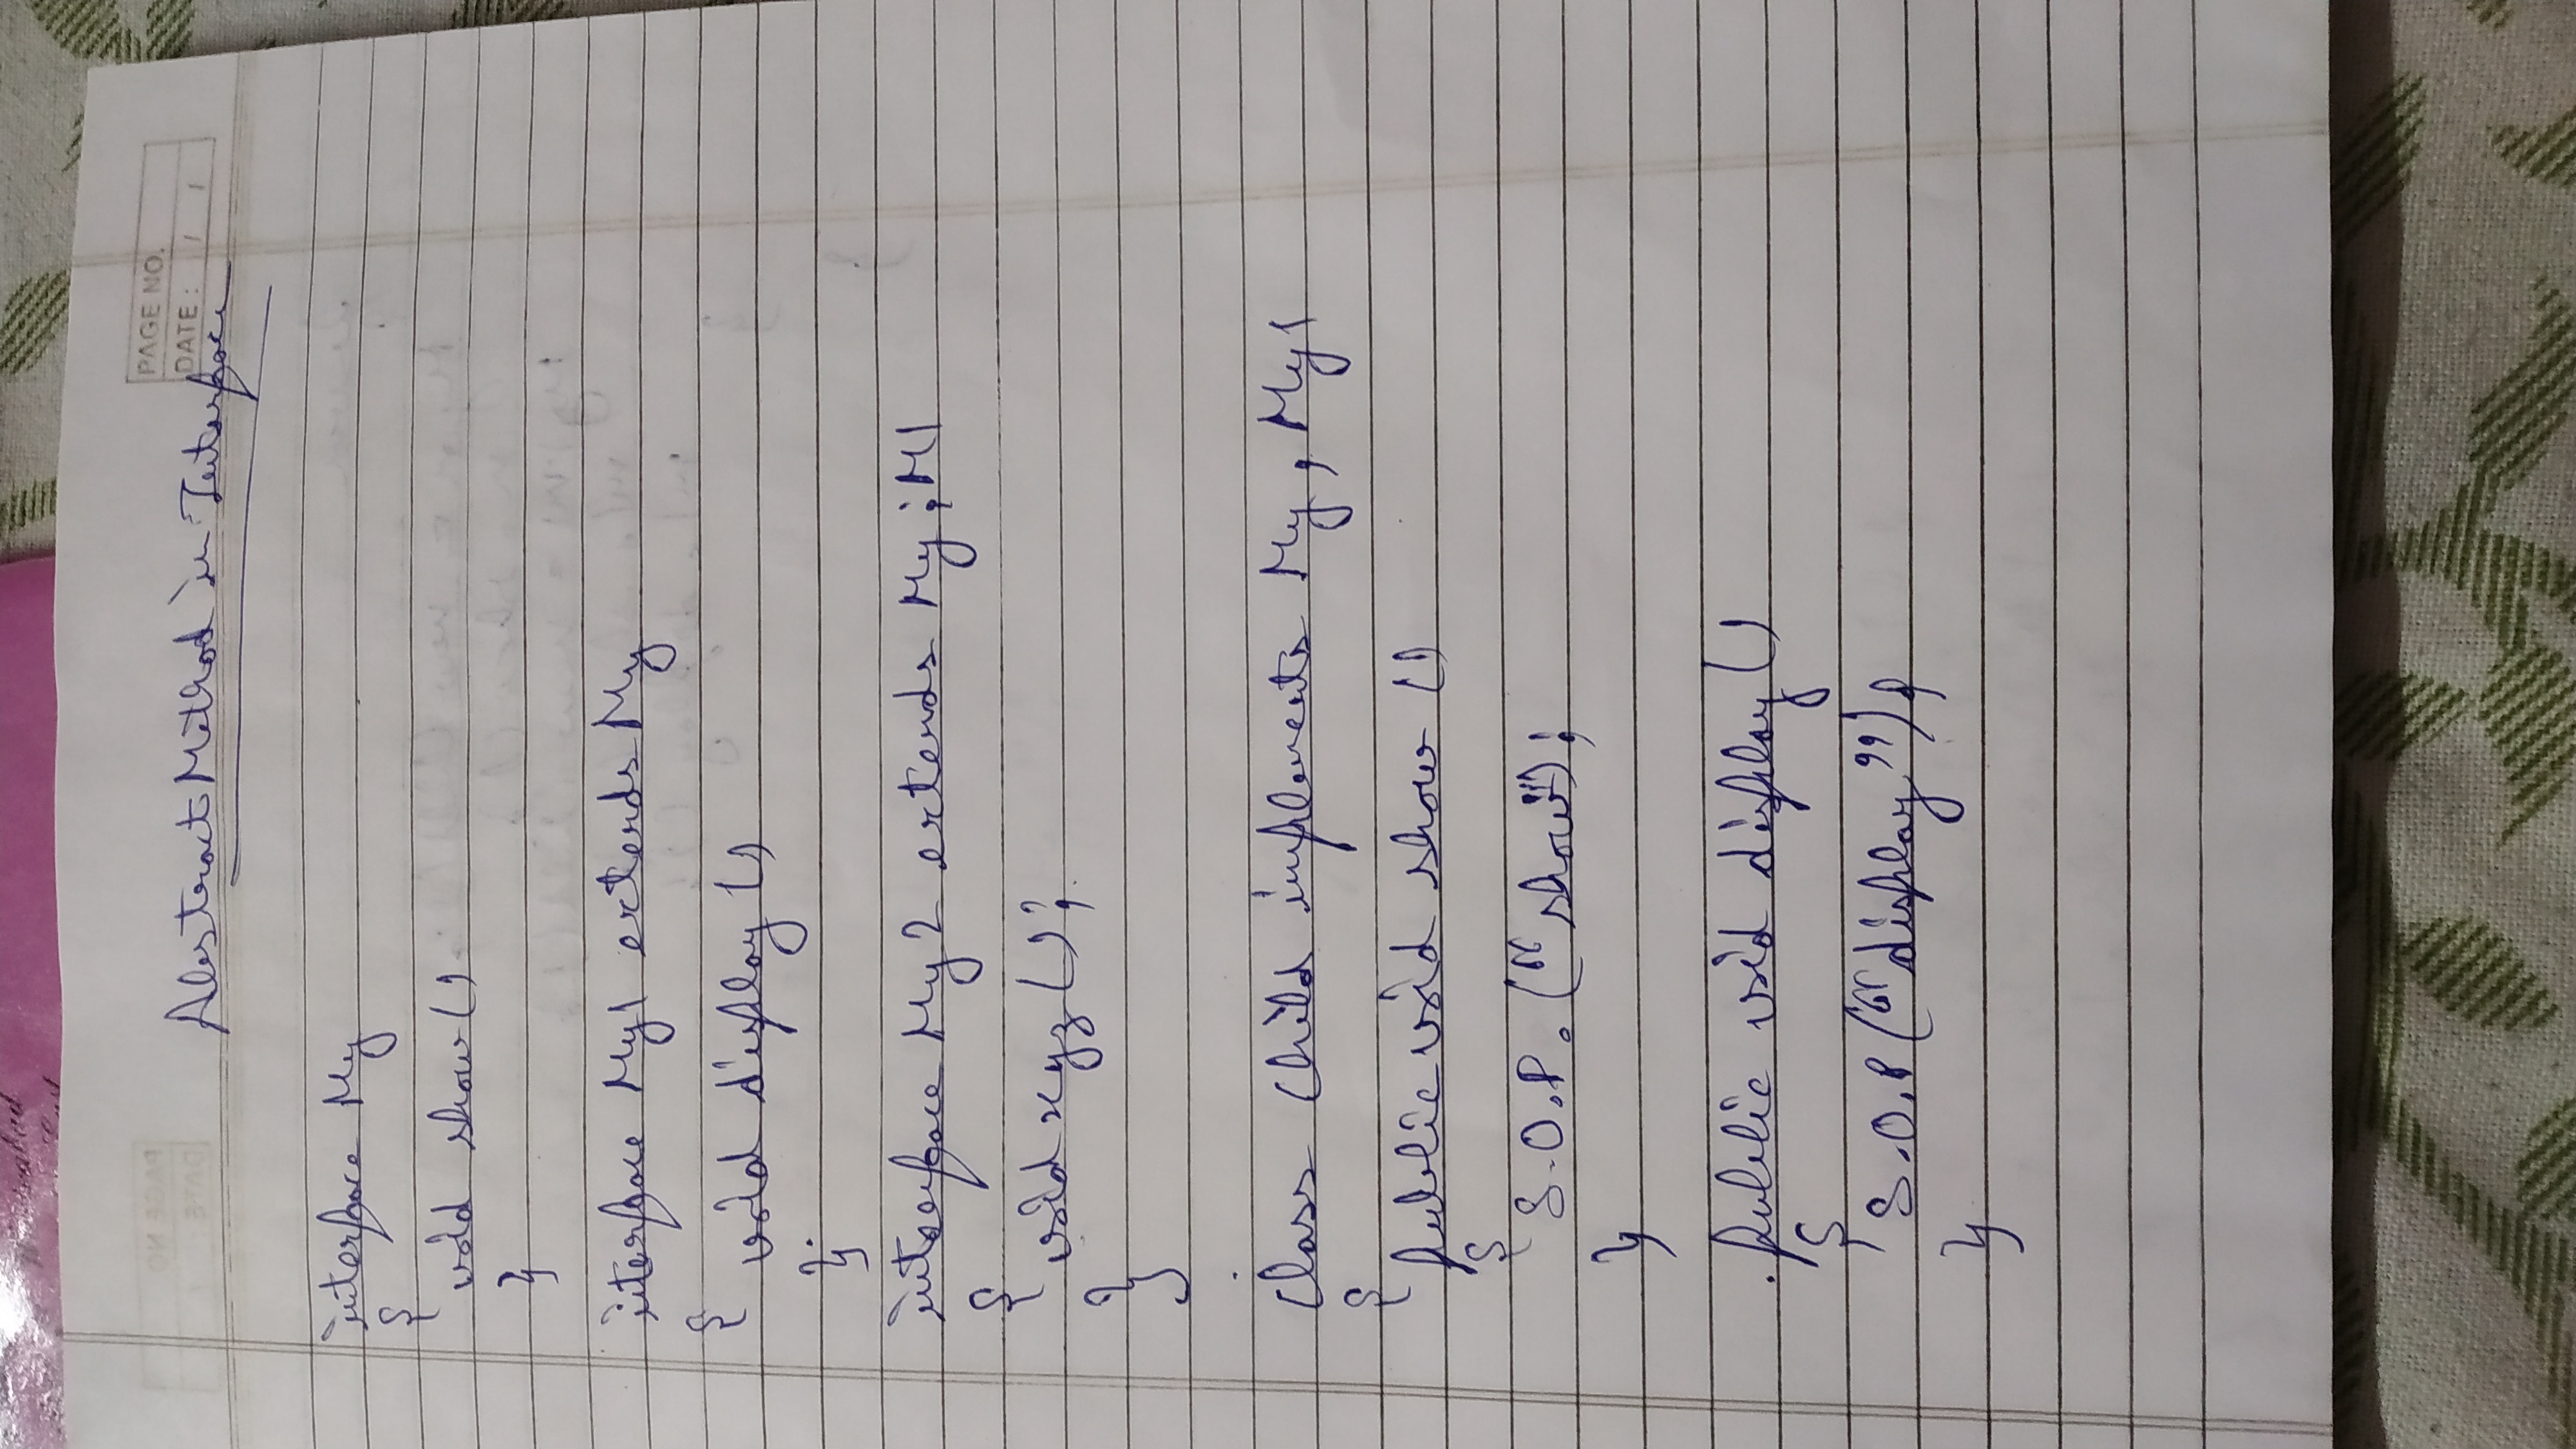 East
PAGE NO.
DATE : / /
Abstract Method in Interface
interface My
{
void show()
}
interface My1 extends My
{ void display ()
};
interface My2 extends My ; M1
{
void xyz();
}
class Child implements My, My1
{
public void show ()
{
S.O.P. ("show");
}
public void display()
{
S.O.P ("display");
}